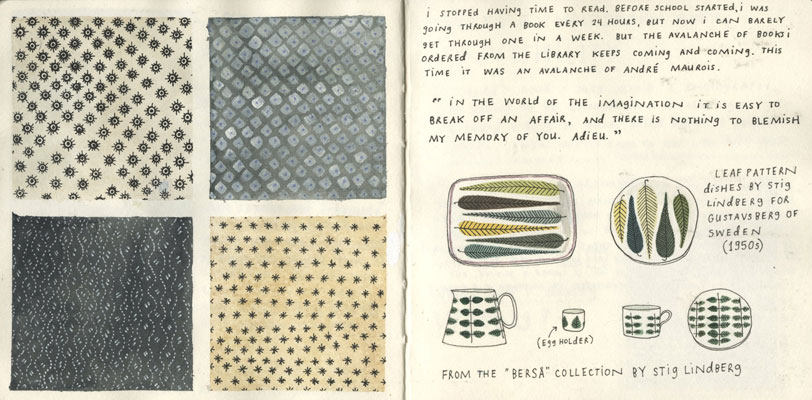 i STOPPED HAVING TIME TO READ. BEFORE SCHOOL STARTED, i WAS
GOING THROUGH A BOOK EVERY 24 HOURS, BUT NOW i CAN BARELY
GET THROUGH ONE IN A WEEK. BUT THE AVALANCHE OF BOOKS i
ORDERED FROM THE LIBRARY KEEPS COMING AND COMING. THIS
TIME IT WAS AN AVALANCHE OF ANDRÉ MAUROIS.
" IN THE WORLD OF THE IMAGINATION IT IS EASY TO
BREAK OFF AN AFFAIR, AND THERE IS NOTHING TO BLEMISH
MY MEMORY OF YOU. ADIEU. "
LEAF PATTERN
DISHES BY STIG
LINDBERG FOR
GUSTAVSBERG OF
SWEDEN
(1950s)
(EGG HOLDER)
FROM THE "BERSÅ" COLLECTION BY STIG LINDBERG